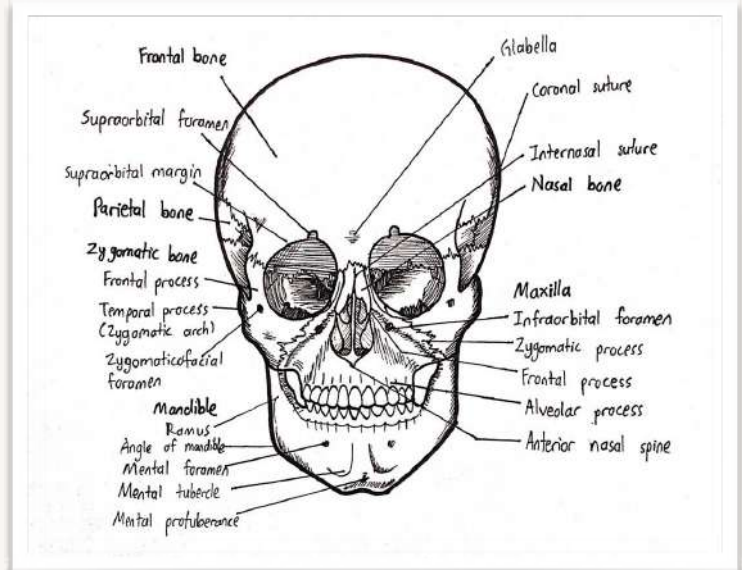 Frontal bone
Supraorbital foramen
Supraorbital margin
Parietal bone
Zygomatic bone
Frontal process
Temporal process
(Zygomatic arch)
Zygomaticofacial
foramen
Mandible
Ramus
Angle of mandible
Mental foramen
Mental tubercle
Mental protuberance
Glabella
Coronal suture
Internasal suture
Nasal bone
Maxilla
Infraorbital foramen
Zygomatic process
Frontal process
Alveolar process
Anterior nasal spine